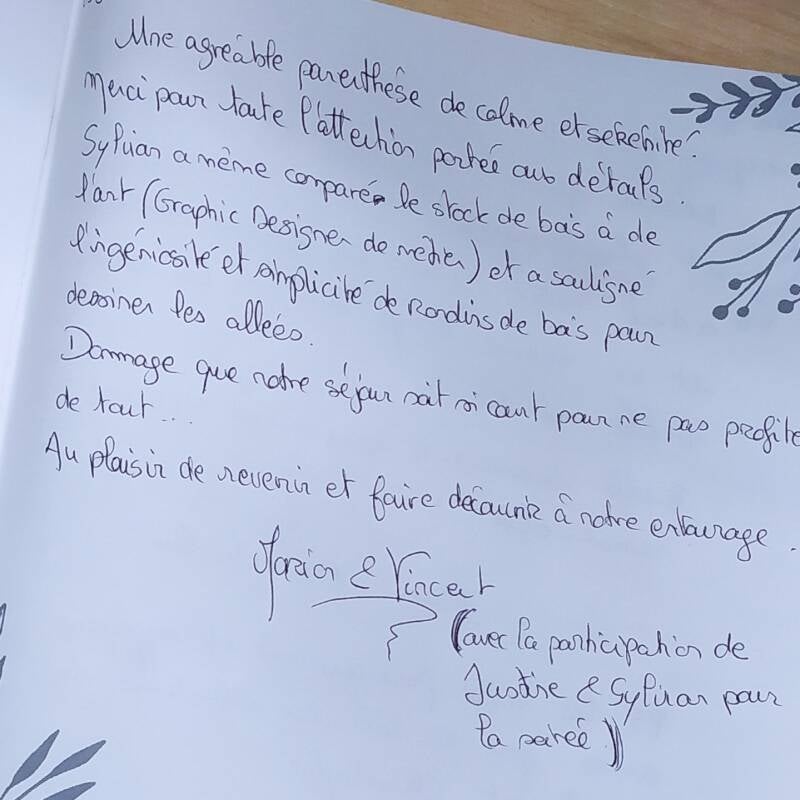 Une agréable parenthèse de calme et sérénité.
Merci pour toute l'attention portée aux détails.
Sylvian a même comparé le stock de bois à de
l'art (Graphic Designer de métier) et a souligné
l'ingéniosité et simplicité de Rondins de bois pour
dessiner les allées.
Dommage que notre séjour soit si court pour ne pas profite
de tout...
Au plaisir de revenir et faire découvrir à notre entourage.
Marion & Vincent
(avec la participation de
Justine & Sylvian pour
la soirée))